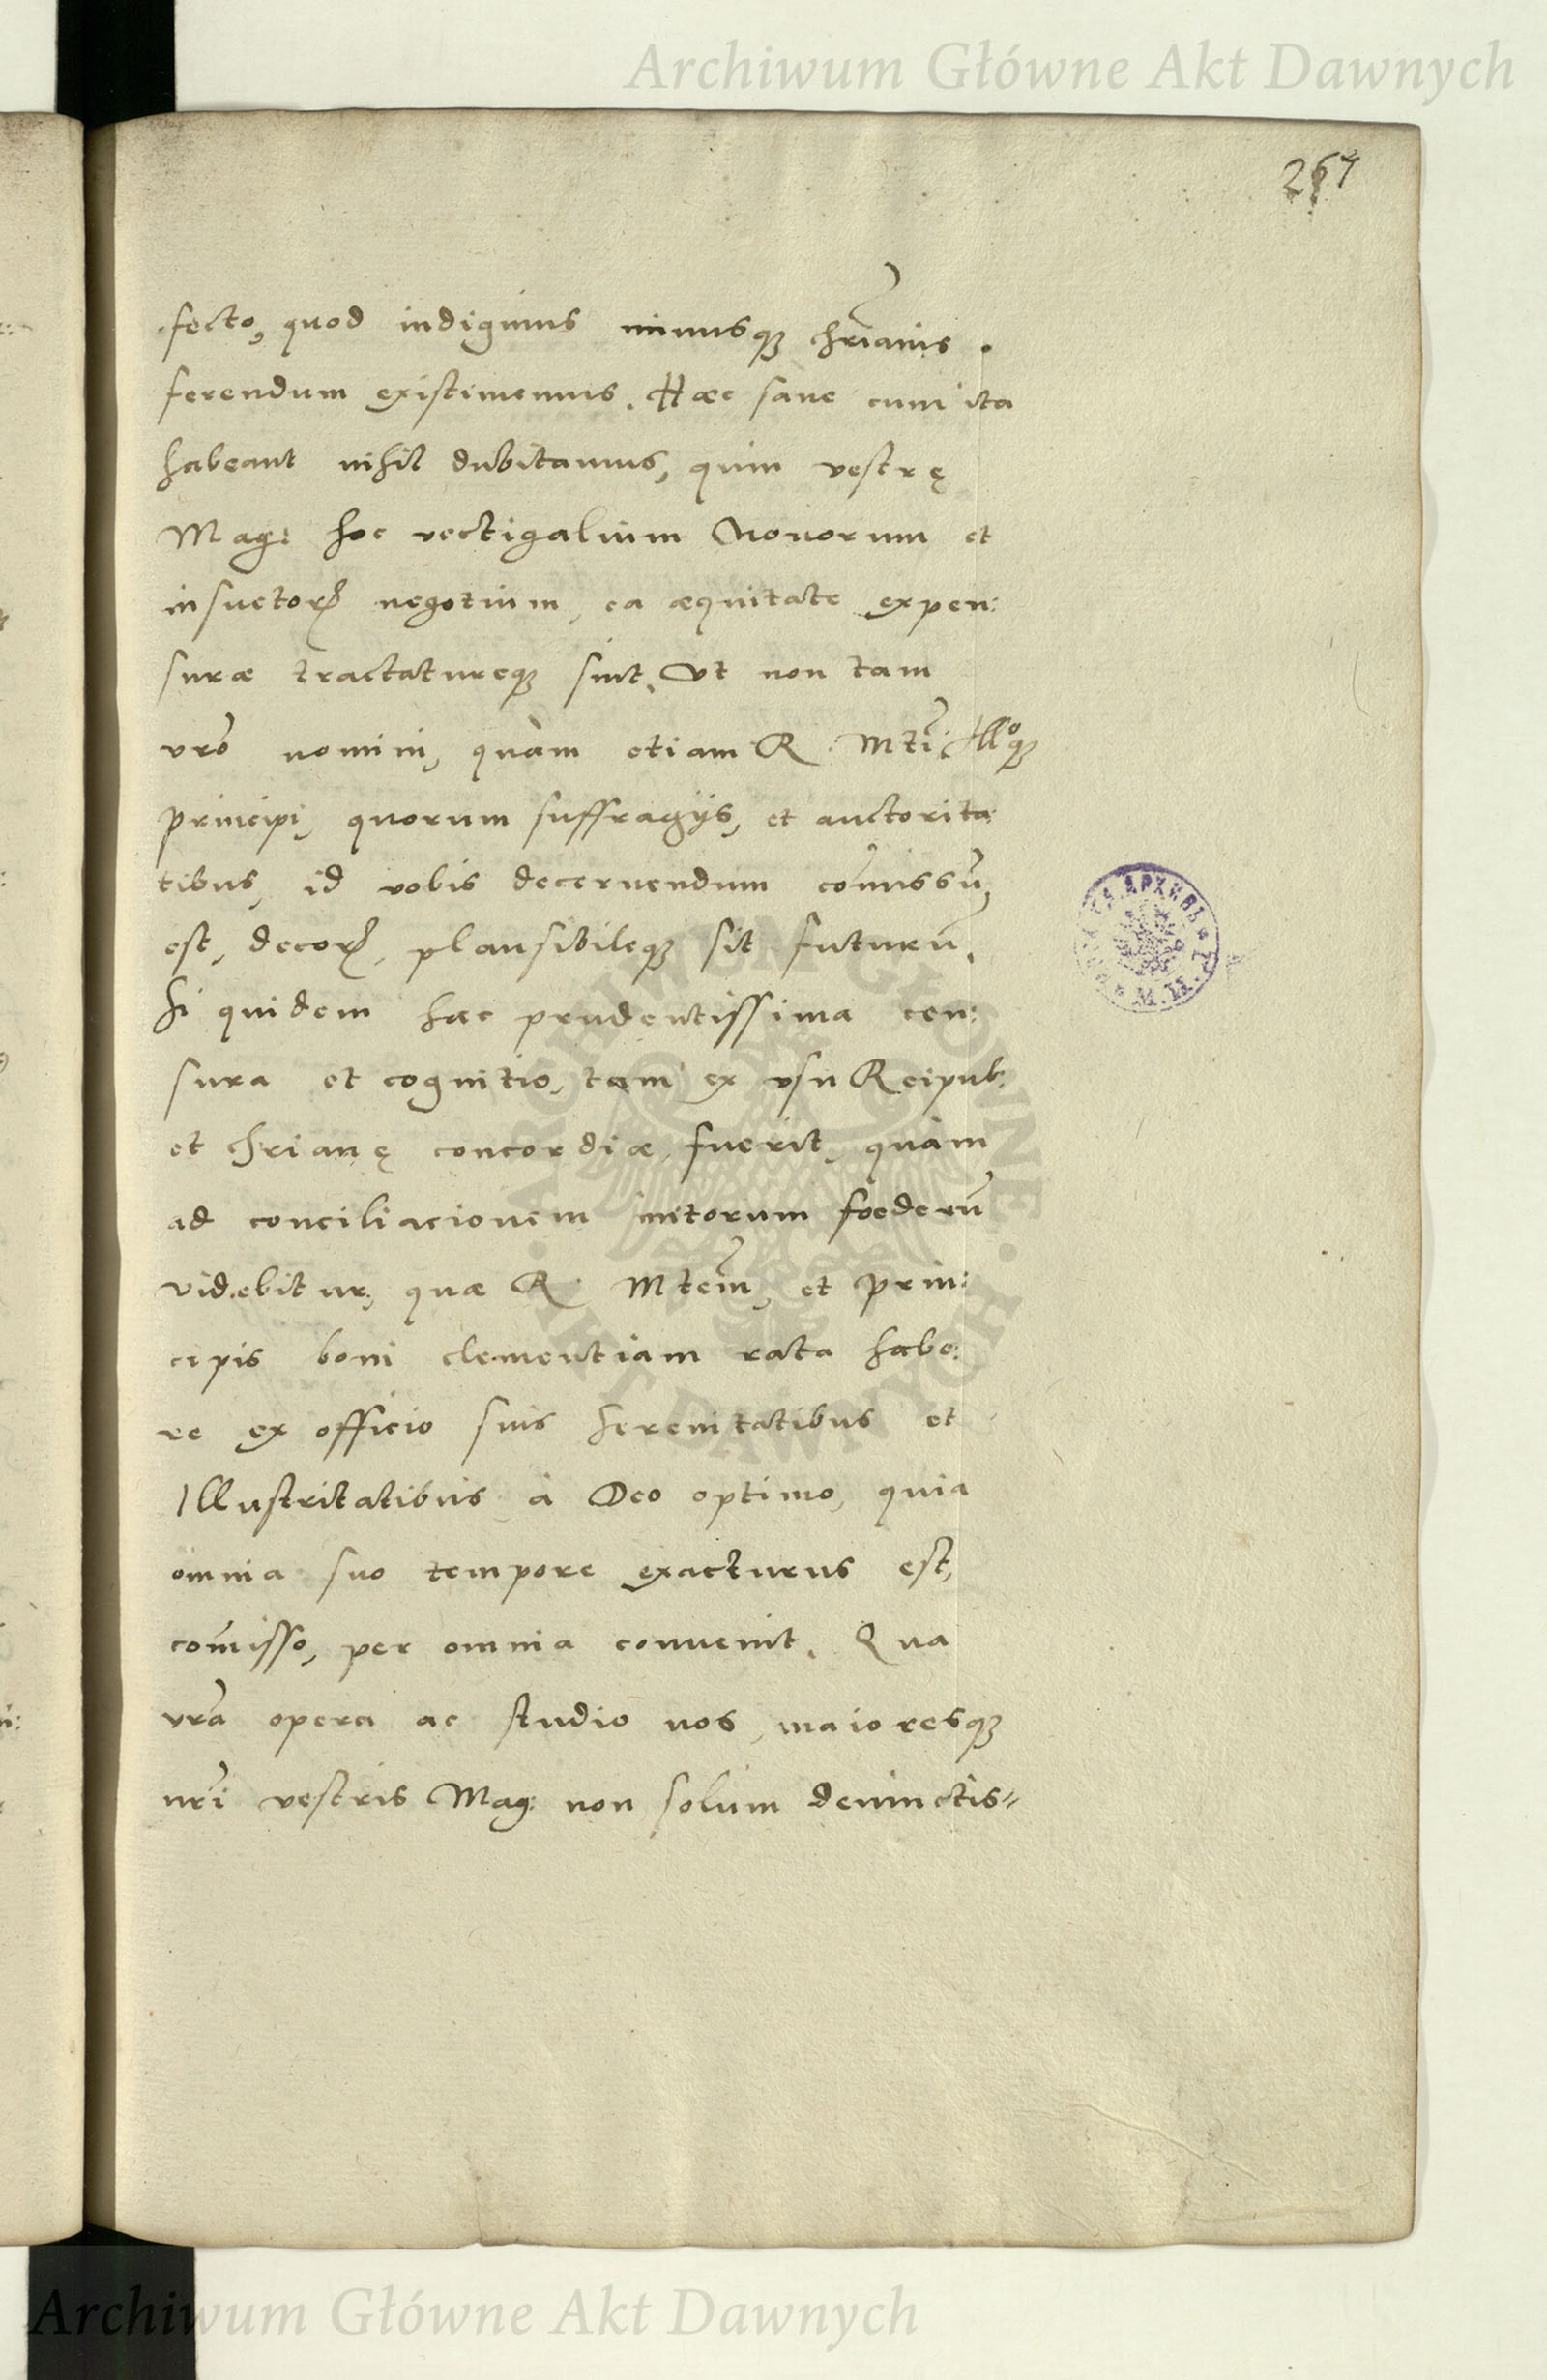 Archiwum Główne Akt Dawnych
264
fecto, quod indignius minusq3 chrianis.
ferendum existimemus. Haec sane cum ita
habeant nihil dubitamus, quin vestrę
Mag: hoc vectigalium Nouorum et
insuetorꝝ negotium, ea æquitate expen:
suræ tractatureq3 sint. Vt non tam
vrō nomini, quàm etiam R. Mtī: Illoq3
principi, quorum suffragijs, et auctorita
tibus, id vobis decernendum com̄issū,
est, decorꝝ, plausibileq3 sit futurū.
Si quidem haec prudentissima cen:
sura et cognitio, tam ex vsu Reipub:
et chrianę concordiæ fuerit, quàm
ad conciliacionem initorum foederū
videbitur, quæ R. Mtem̄, et prin:
cipis boni clementiam rata habe:
re ex officio suis Serenitatibus et
Illustritatibus à Deo optimo, quia
omnia suo tempore exacturus est,
com̄isso, per omnia conuenit. Qua
vrā opera ac studio nos, maioresq3
nrī vestris Mag: non solum deuinctis=
ARCHIWUM GŁÓWNE · AKT DAWNYCH ·
Archiwum Główne Akt Dawnych